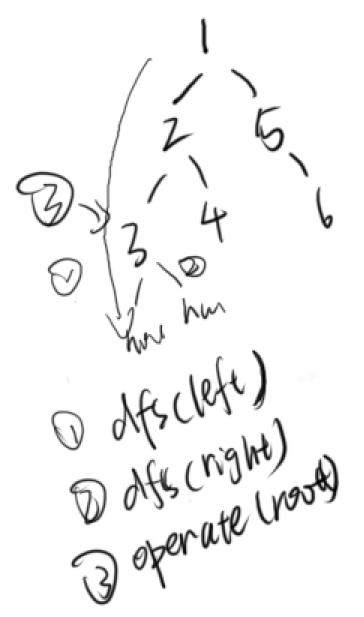 1
2 5
③ 3 4 6
① ②
① dfs(left)
② dfs(right)
③ operate(root)